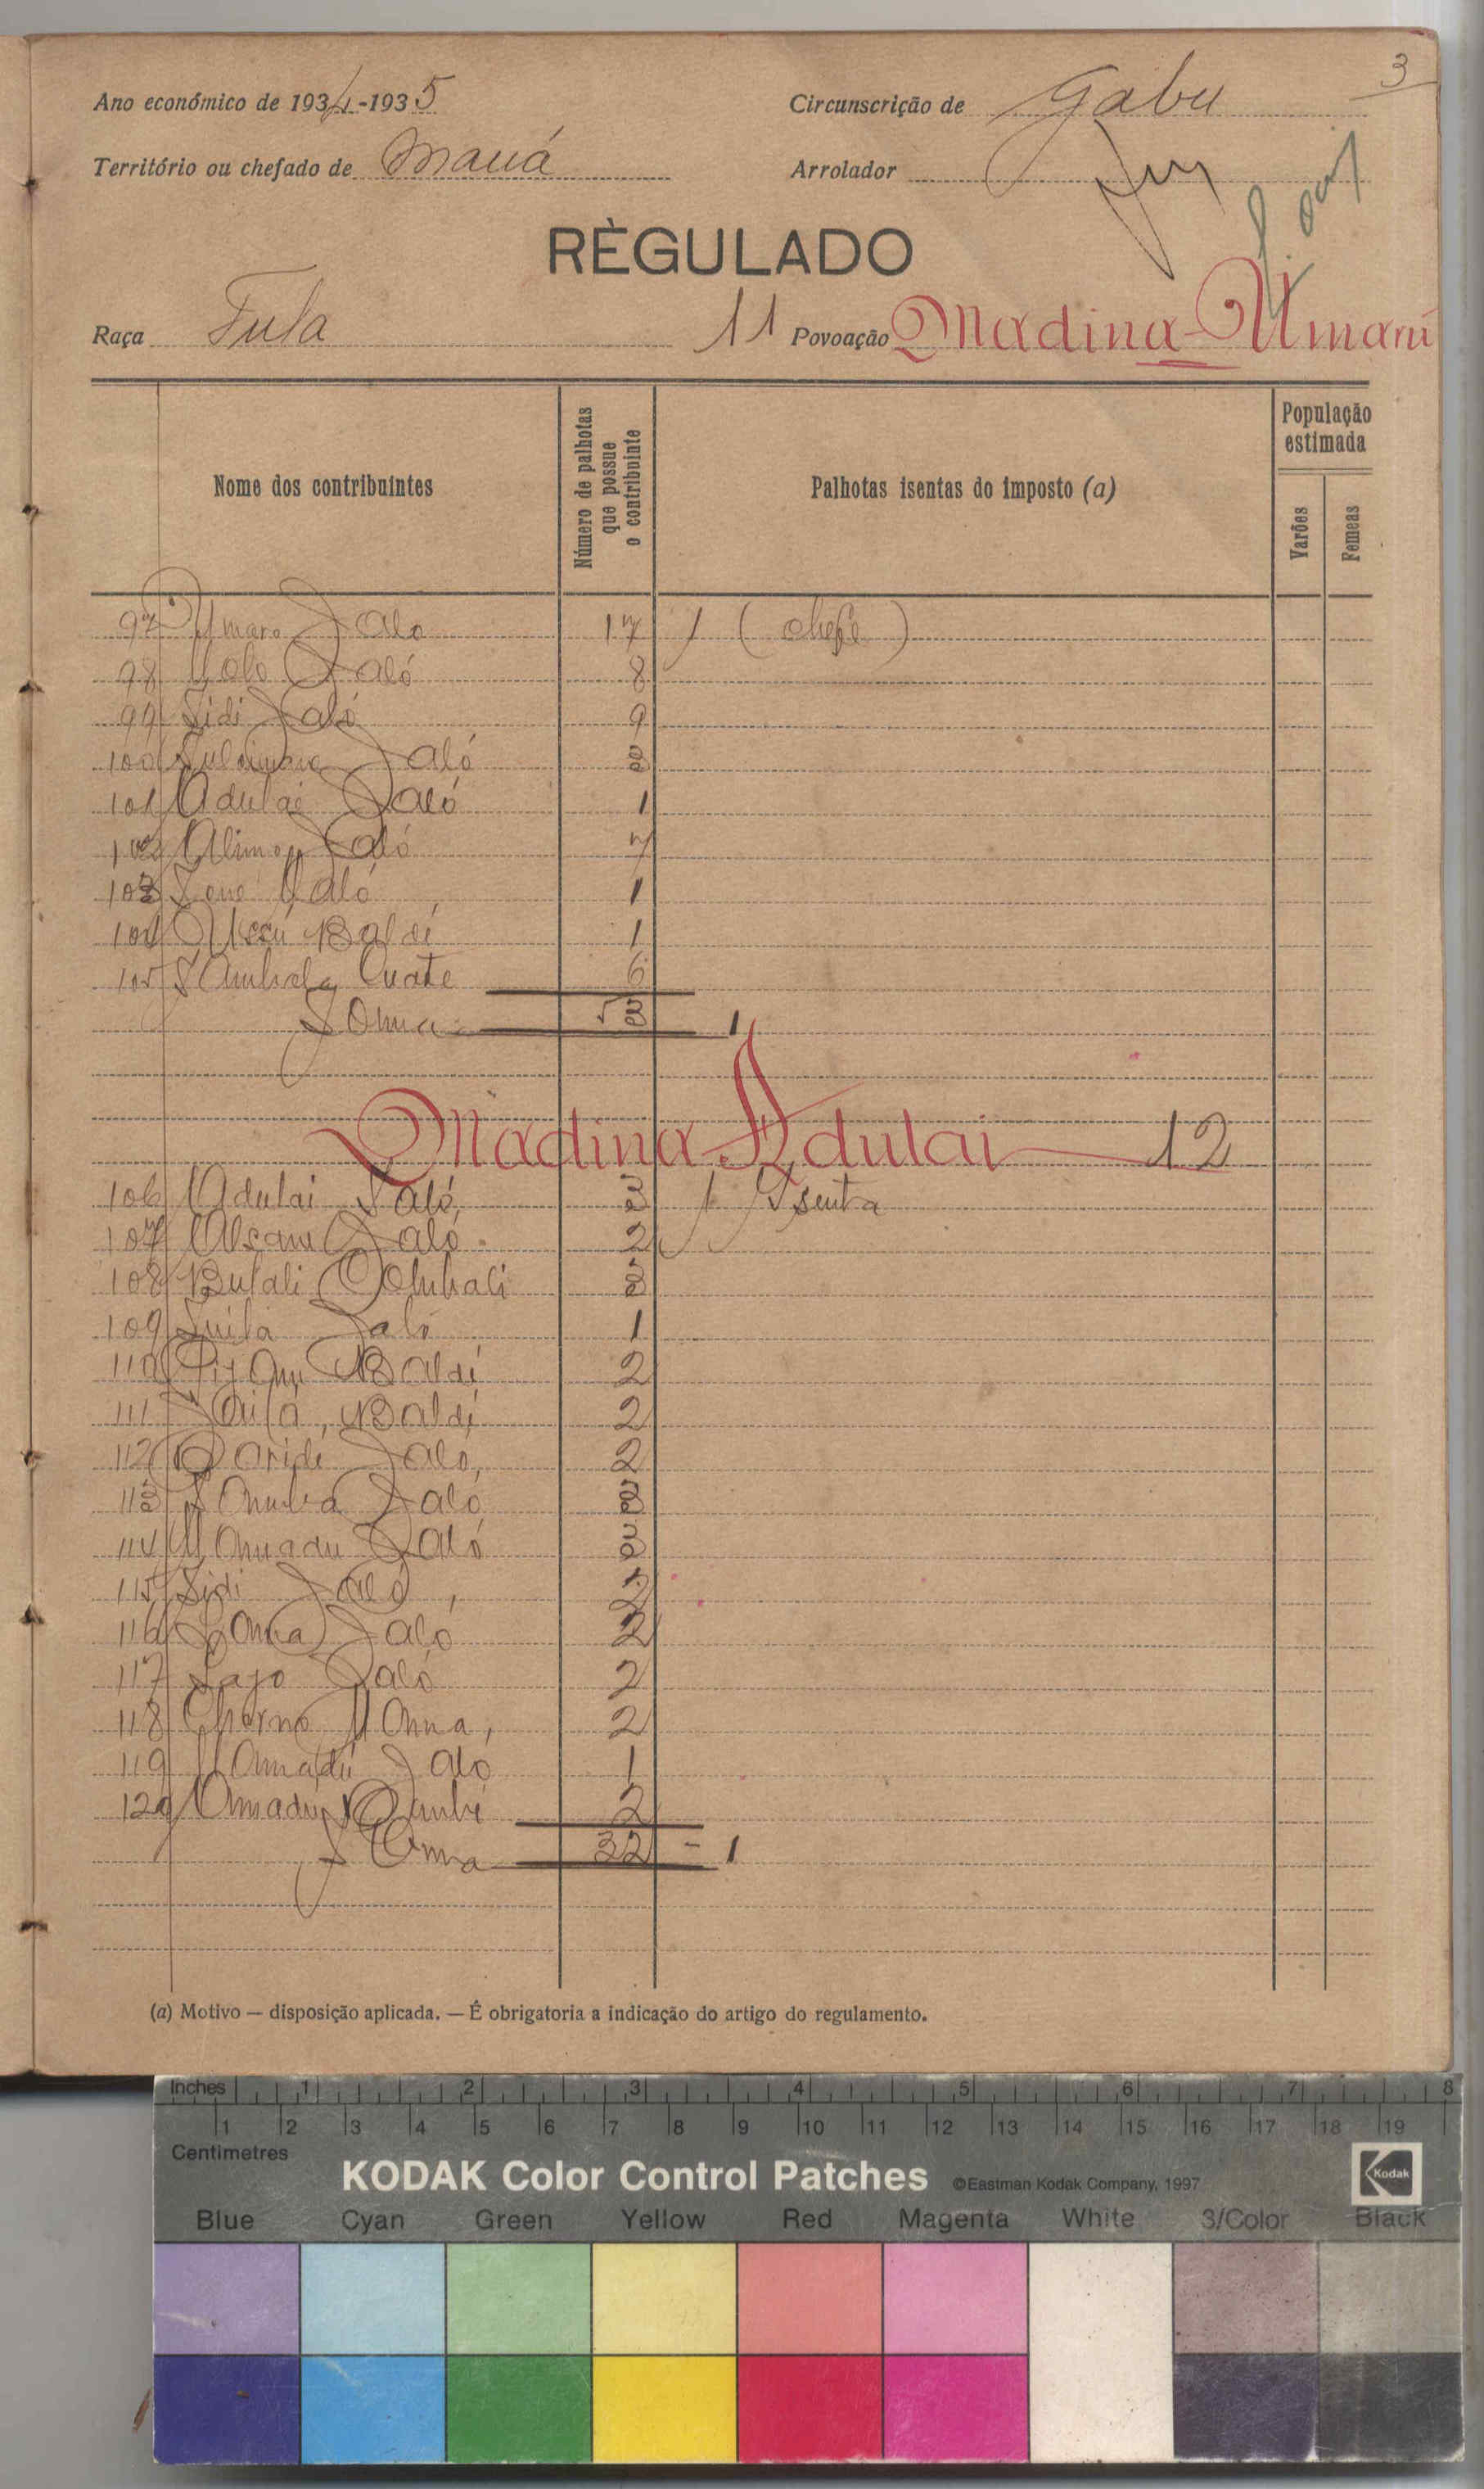 3
Ano económico de 1934-1935 Circunscrição de Gabu
Território ou chefado de Maná Arrolador
RÈGULADO
Raça Fula 11 Povoação Madina-Umarú
Nome dos contribuintes
Número de palhotas que possue o contribuinte
Palhotas isentas do imposto (a)
População estimada
Varões
Femeas
97 Umaro Jaló 17 1 (chefe)
98 Iobo Jaló 8
99 Sidi Jaló 9
100 Jaló 3
101 Adulai Jaló 1
102 Alimo Jaló 7
103 Jaló 1
104 Ussú Baldé 1
105 Sambela 6
Soma 53 1
Madina Adulai 12
106 Adulai Jaló 3 1 Isenta
107 Alsani Jaló 2
108 Butali Embali 3
109 Jaló 1
110 Baldé 2
111 Saila Baldé 2
112 Jaló 2
113 Samba Jaló 3
114 Mamadu Jaló 3
115 Sidi Jaló 2
116 Jaló 2
117 Sajo Jaló 2
118 Cherno 2
119 Mamadú Jaló 1
120 Amadu 2
Soma 32 - 1
(a) Motivo — disposição aplicada. — É obrigatoria a indicação do artigo do regulamento.
Inches 1 2 3 4 5 6 7 8
1 2 3 4 5 6 7 8 9 10 11 12 13 14 15 16 17 18 19
Centimetres
KODAK Color Control Patches ©Eastman Kodak Company, 1997 Kodak
Blue Cyan Green Yellow Red Magenta White 3/Color Black